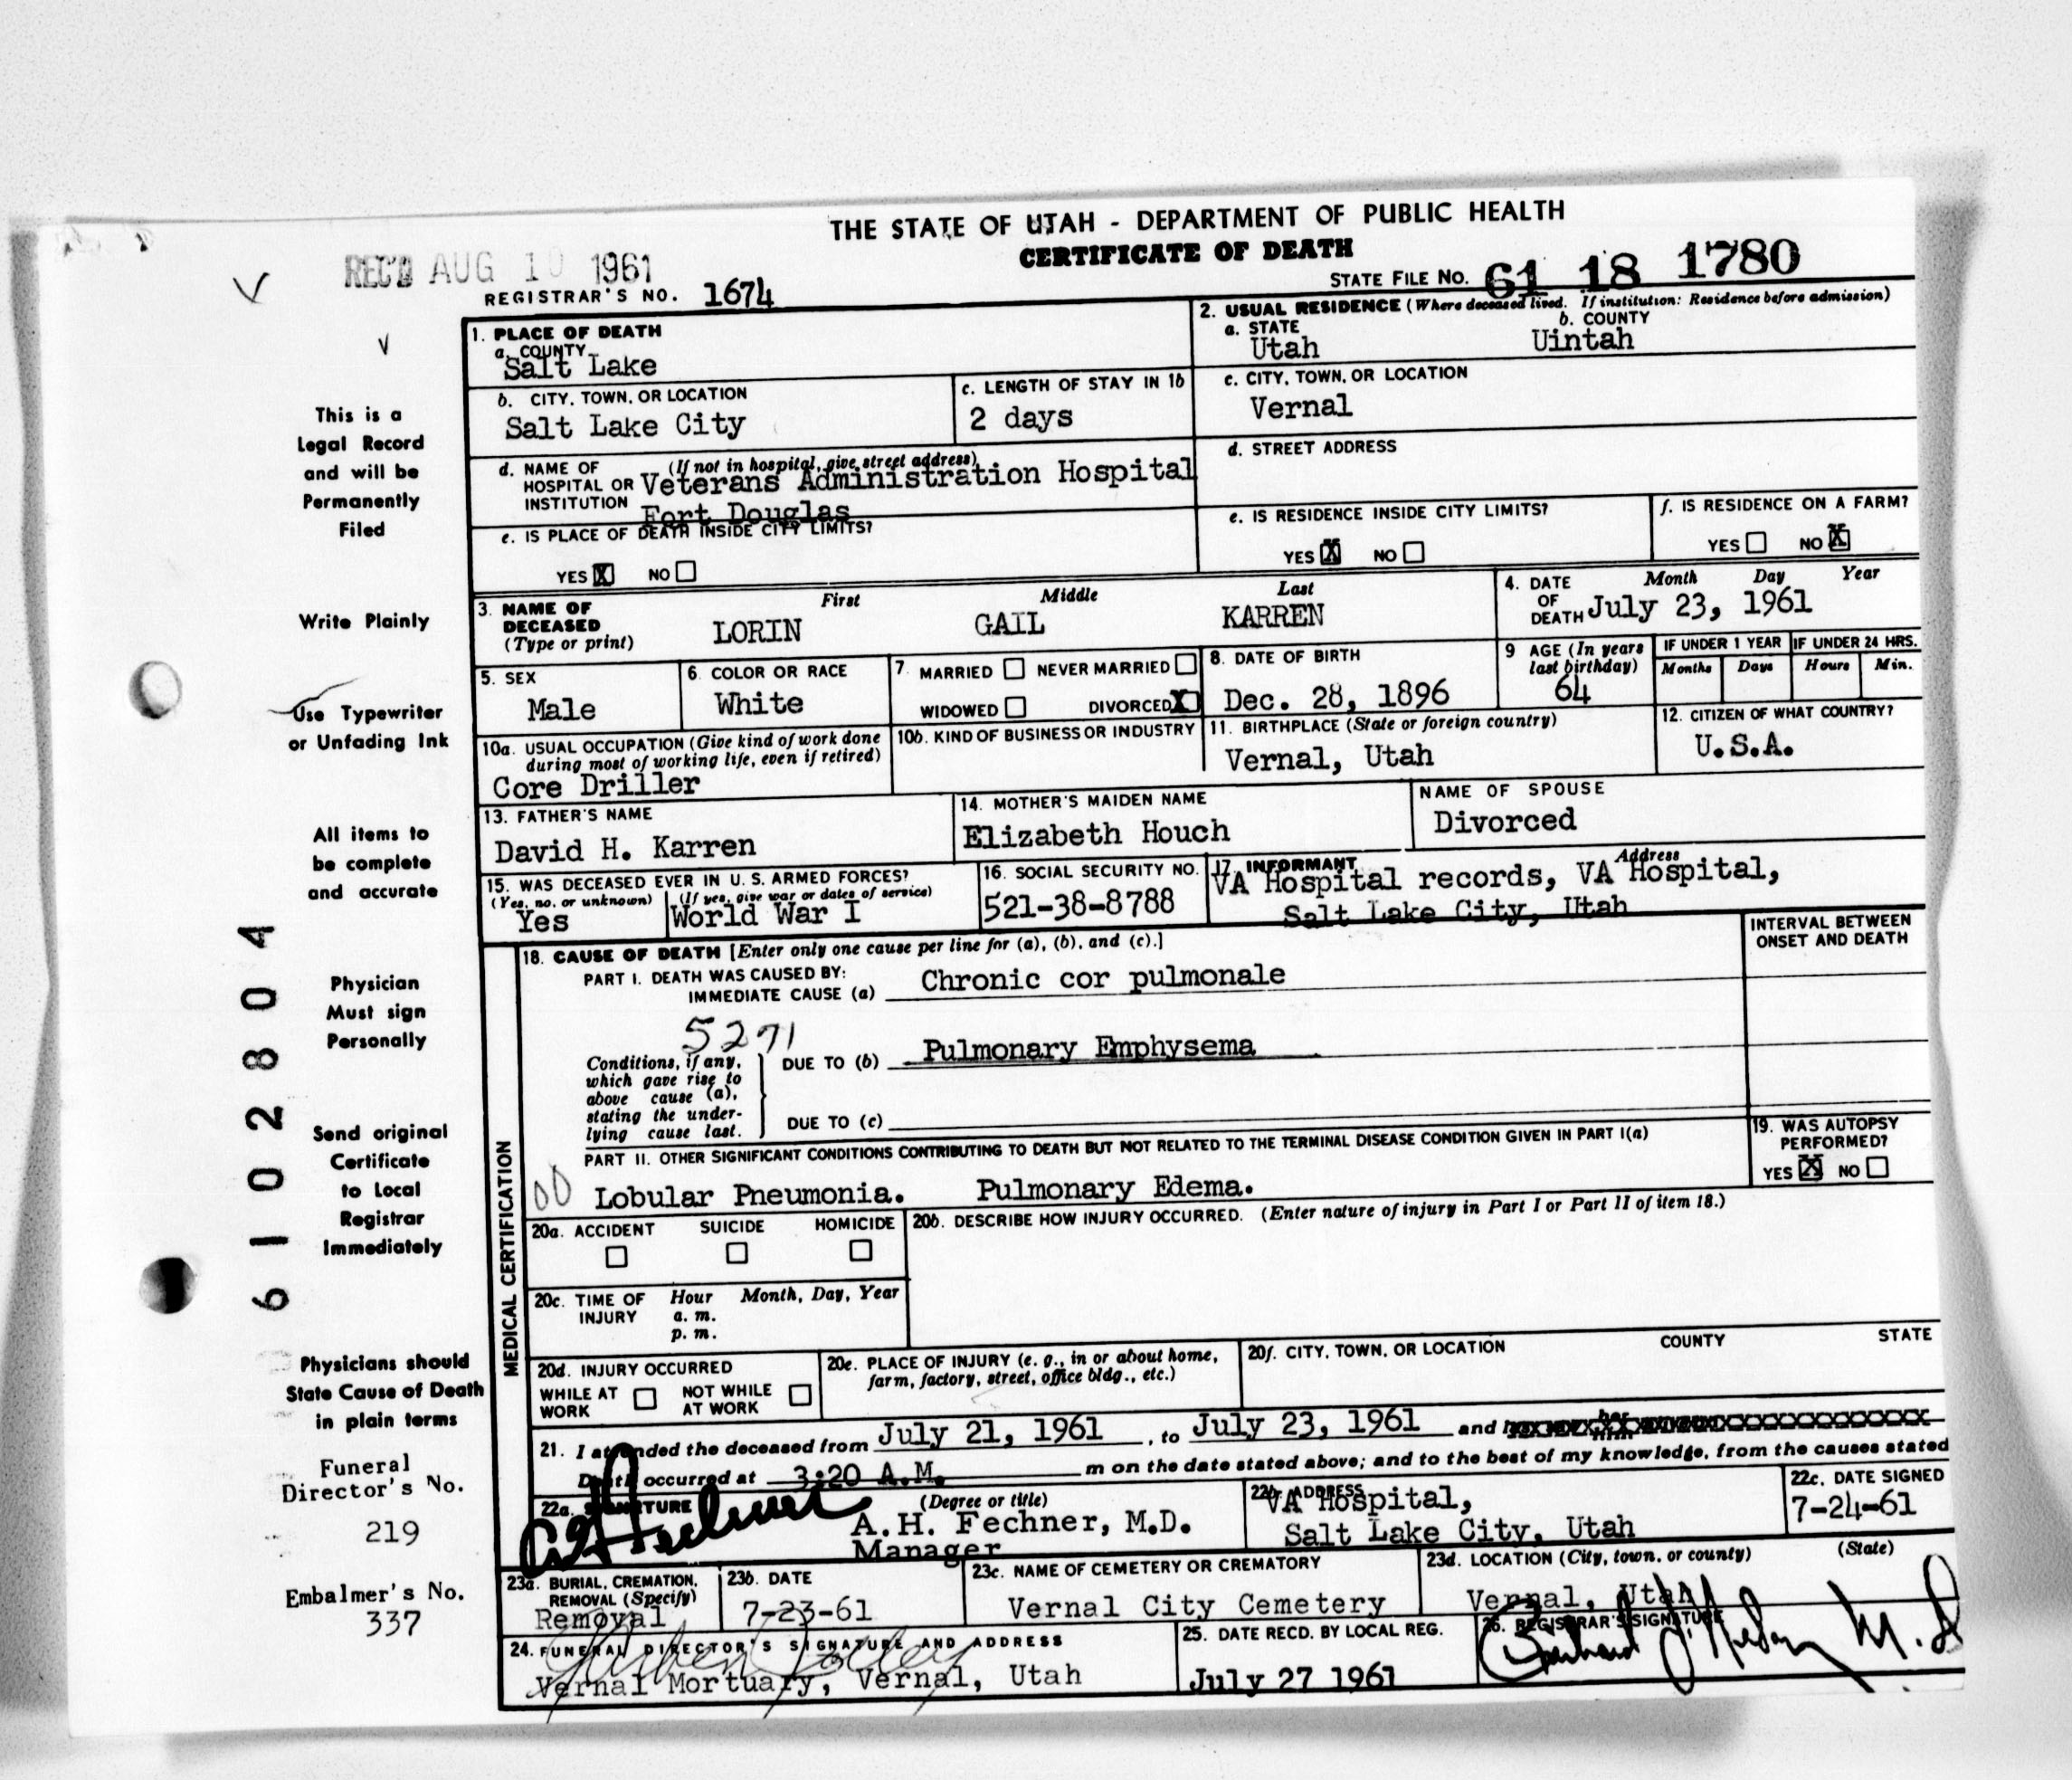 THE STATE OF UTAH - DEPARTMENT OF PUBLIC HEALTH
CERTIFICATE OF DEATH
REC'D AUG 10 1961
STATE FILE NO. 61 18 1780
REGISTRAR'S NO. 1674
1. PLACE OF DEATH
a. COUNTY
Salt Lake
2. USUAL RESIDENCE (Where deceased lived. If institution: Residence before admission)
a. STATE b. COUNTY
Utah Uintah
b. CITY, TOWN, OR LOCATION
Salt Lake City
c. LENGTH OF STAY IN 1b
2 days
c. CITY, TOWN, OR LOCATION
Vernal
d. NAME OF (If not in hospital, give street address)
HOSPITAL OR Veterans Administration Hospital
INSTITUTION Fort Douglas
d. STREET ADDRESS
e. IS PLACE OF DEATH INSIDE CITY LIMITS?
YES X NO
e. IS RESIDENCE INSIDE CITY LIMITS?
YES X NO
f. IS RESIDENCE ON A FARM?
YES NO X
3. NAME OF DECEASED (Type or print)
First Middle Last
LORIN GAIL KARREN
4. DATE OF DEATH Month Day Year
July 23, 1961
5. SEX
Male
6. COLOR OR RACE
White
7. MARRIED NEVER MARRIED
WIDOWED DIVORCED X
8. DATE OF BIRTH
Dec. 28, 1896
9 AGE (In years last birthday)
64
IF UNDER 1 YEAR IF UNDER 24 HRS.
Months Days Hours Min.
10a. USUAL OCCUPATION (Give kind of work done
during most of working life, even if retired)
Core Driller
10b. KIND OF BUSINESS OR INDUSTRY
11. BIRTHPLACE (State or foreign country)
Vernal, Utah
12. CITIZEN OF WHAT COUNTRY?
U.S.A.
13. FATHER'S NAME
David H. Karren
14. MOTHER'S MAIDEN NAME
Elizabeth Houch
NAME OF SPOUSE
Divorced
15. WAS DECEASED EVER IN U. S. ARMED FORCES?
(Yes, no, or unknown) (If yes, give war or dates of service)
Yes World War I
16. SOCIAL SECURITY NO.
521-38-8788
17. INFORMANT Address
VA Hospital records, VA Hospital,
Salt Lake City, Utah
MEDICAL CERTIFICATION
18. CAUSE OF DEATH [Enter only one cause per line for (a), (b), and (c).]
INTERVAL BETWEEN
ONSET AND DEATH
PART I. DEATH WAS CAUSED BY:
IMMEDIATE CAUSE (a) Chronic cor pulmonale
5271
Conditions, if any,
which gave rise to
above cause (a),
stating the under-
lying cause last.
DUE TO (b) Pulmonary Emphysema
DUE TO (c)
PART II. OTHER SIGNIFICANT CONDITIONS CONTRIBUTING TO DEATH BUT NOT RELATED TO THE TERMINAL DISEASE CONDITION GIVEN IN PART I(a)
00 Lobular Pneumonia. Pulmonary Edema.
19. WAS AUTOPSY
PERFORMED?
YES X NO
20a. ACCIDENT SUICIDE HOMICIDE
20b. DESCRIBE HOW INJURY OCCURRED. (Enter nature of injury in Part I or Part II of item 18.)
20c. TIME OF INJURY Hour Month, Day, Year
a. m.
p. m.
20d. INJURY OCCURRED
WHILE AT WORK NOT WHILE AT WORK
20e. PLACE OF INJURY (e. g., in or about home,
farm, factory, street, office bldg., etc.)
20f. CITY, TOWN, OR LOCATION COUNTY STATE
21. I attended the deceased from July 21, 1961, to July 23, 1961 and
Death occurred at 3:20 A.M. m on the date stated above; and to the best of my knowledge, from the causes stated
22a. SIGNATURE (Degree or title)
A H Fechner
A.H. Fechner, M.D.
Manager
22b. ADDRESS
VA Hospital,
Salt Lake City, Utah
22c. DATE SIGNED
7-24-61
23a. BURIAL, CREMATION,
REMOVAL (Specify)
Removal
23b. DATE
7-23-61
23c. NAME OF CEMETERY OR CREMATORY
Vernal City Cemetery
23d. LOCATION (City, town, or county) (State)
Vernal, Utah
24. FUNERAL DIRECTOR'S SIGNATURE AND ADDRESS
Vernal Mortuary, Vernal, Utah
25. DATE RECD. BY LOCAL REG.
July 27 1961
26. REGISTRAR'S SIGNATURE
M.D.
This is a
Legal Record
and will be
Permanently
Filed
Write Plainly
Use Typewriter
or Unfading Ink
All items to
be complete
and accurate
Physician
Must sign
Personally
Send original
Certificate
to Local
Registrar
Immediately
Physicians should
State Cause of Death
in plain terms
Funeral
Director's No.
219
Embalmer's No.
337
6102804